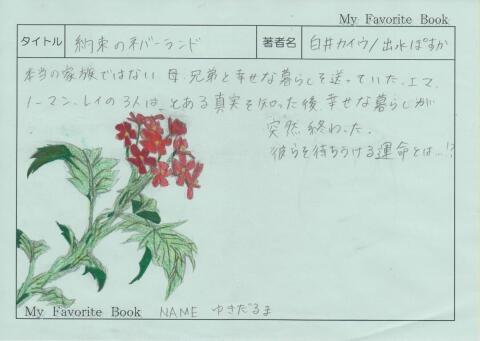 My Favorite Book
タイトル 約束のネバーランド 著者名 白井カイウ/出水ぽすか
本当の家族ではない母、兄弟と幸せな暮らしを送っていた、エマ、
ノーマン、レイの3人は、とある真実を知った後、幸せな暮らしが
突然終わった。
彼らを待ちうける運命とは…!?
My Favorite Book NAME ゆきだるま